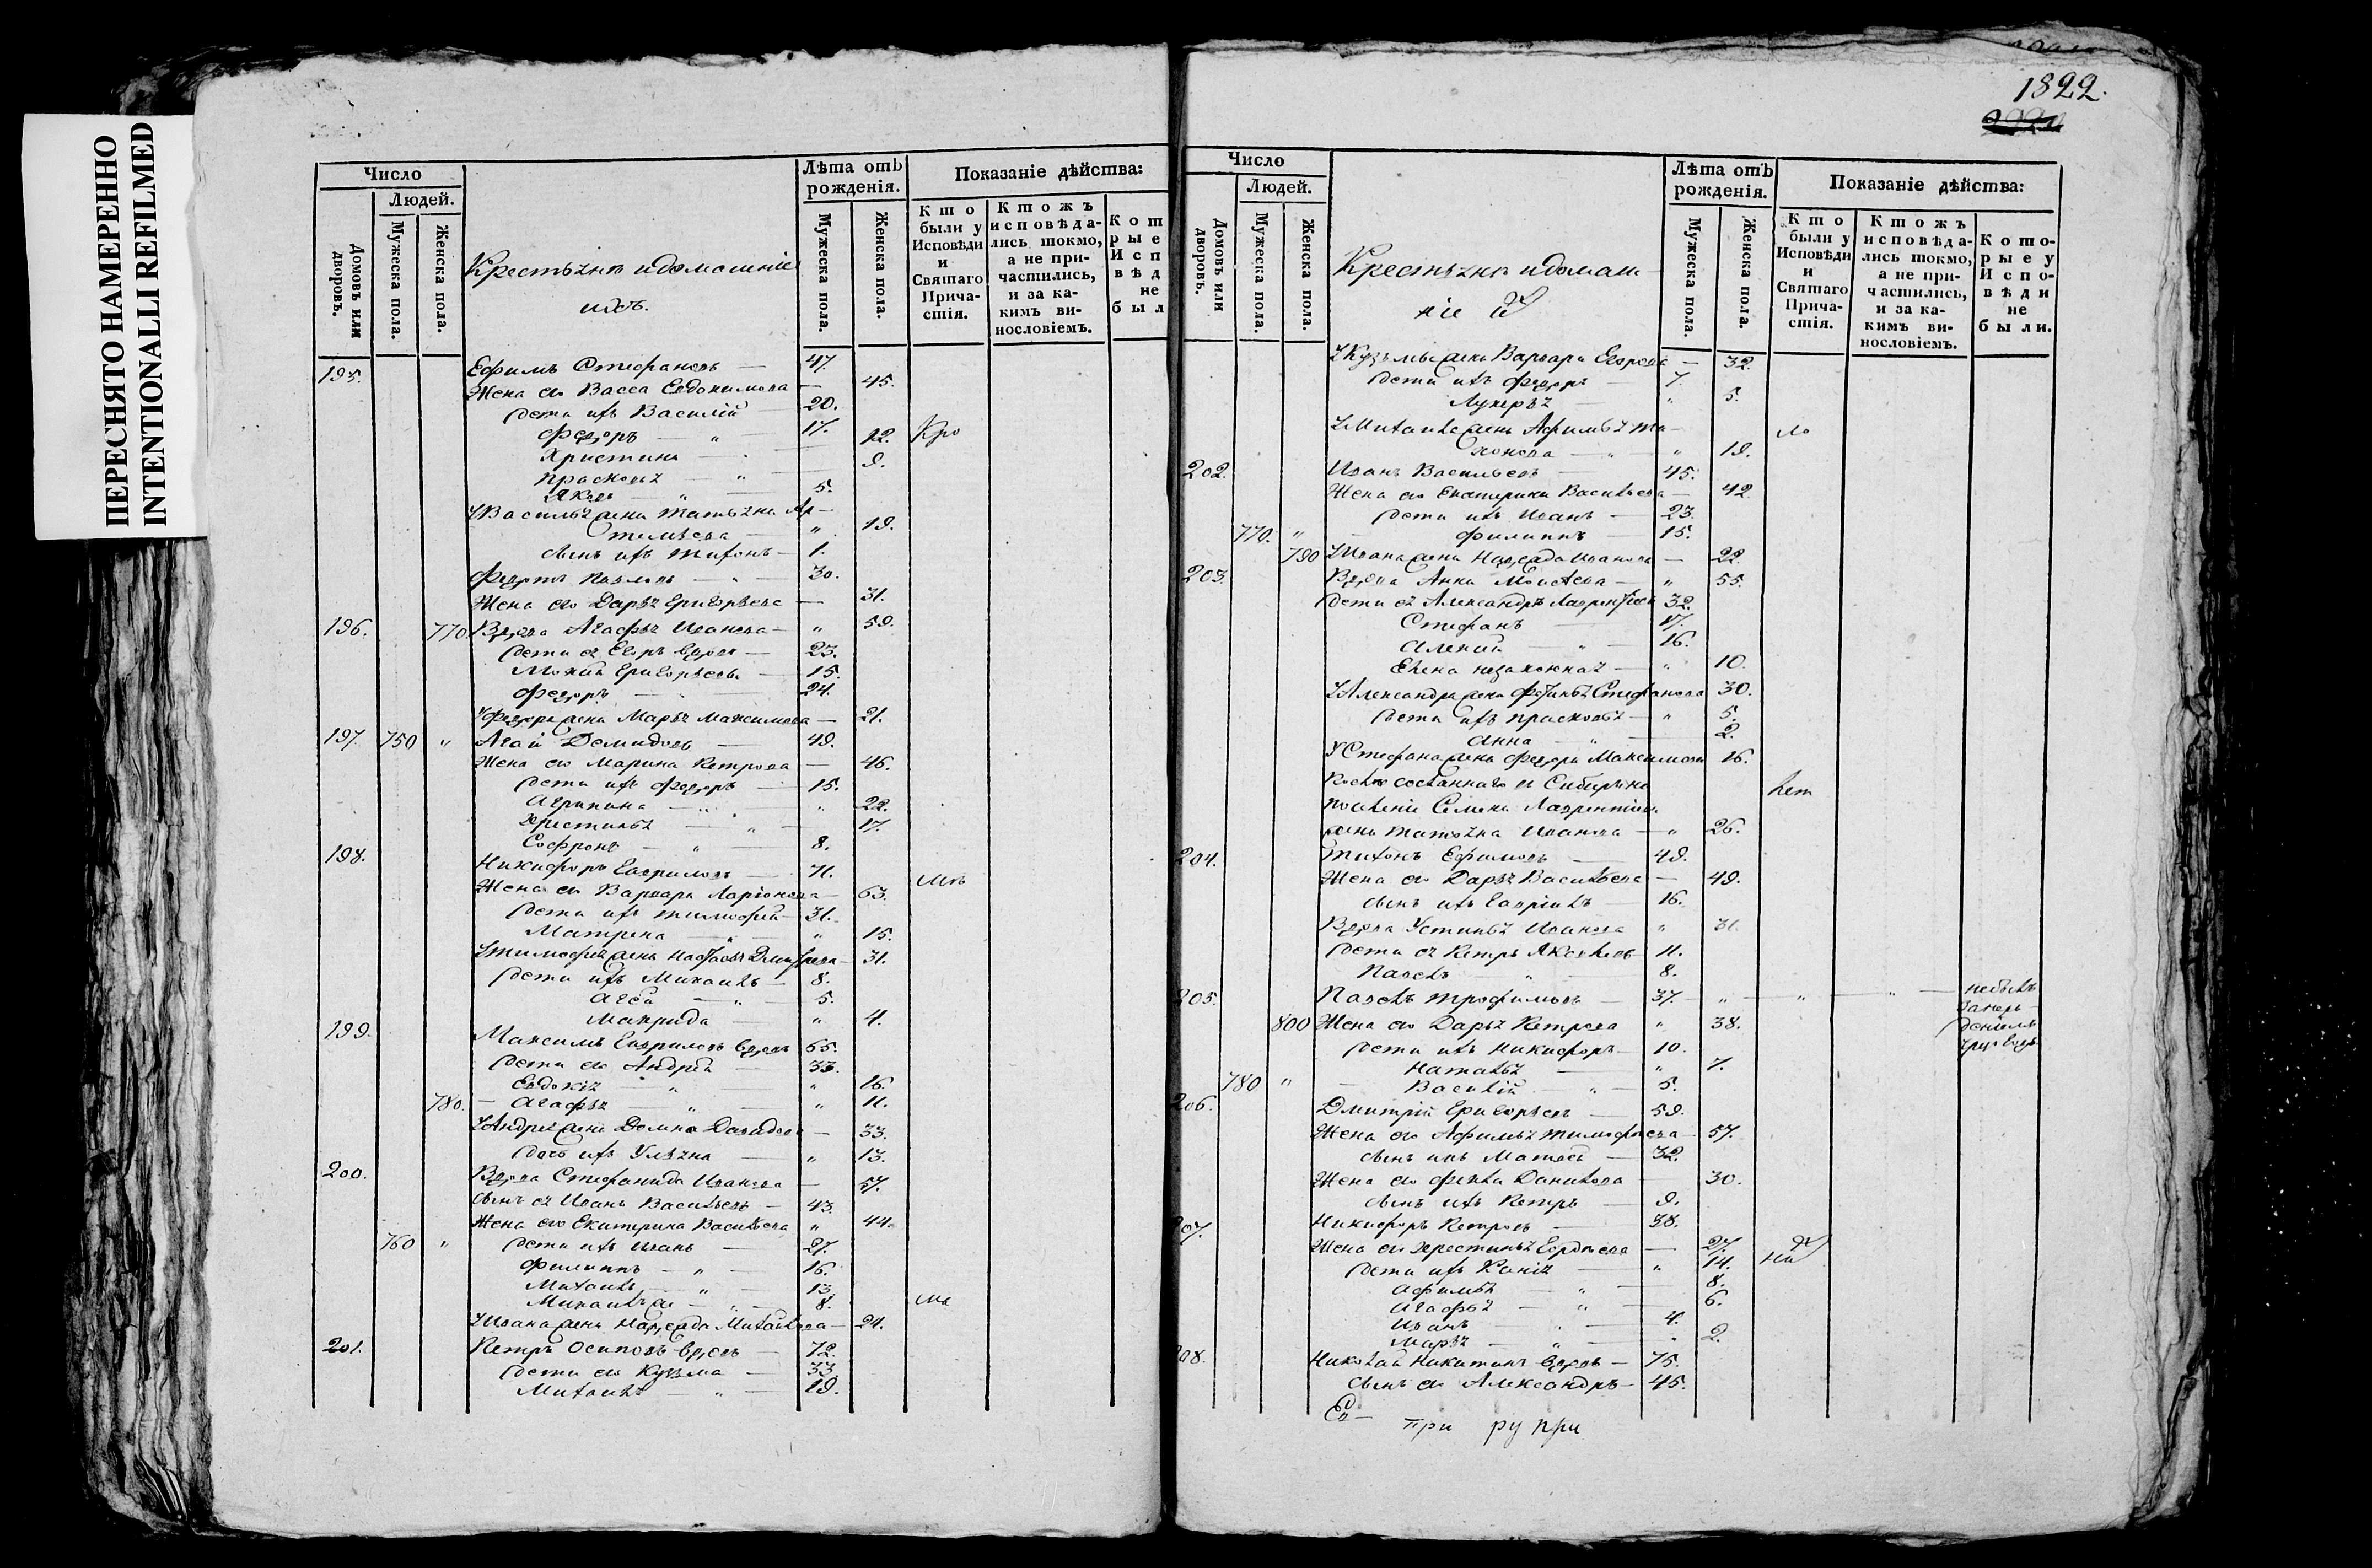 ПЕРЕСНЯТО НАМЕРЕННО
INTENTIONALLI REFILMED
Число
Людей.
Домовъ или дворовъ.
Мужеска пола.
Женска пола.
Крестьянъ и домашніе
ихъ.
Лѣта отъ рожденія.
Мужеска пола.
Женска пола.
Показаніе дѣйства:
Кто были у Исповѣди и Святаго Причастія.
Ктожъ исповѣдались токмо, а не причастились, и за какимъ винословіемъ.
Кот
рые
Исп
вѣд
не
был
195. Ефимъ Стефановъ — 47.
Жена ево Васса Евдокимова — 45.
Дети ихъ Василій 20.
Федоръ — " 17.
Христина — 12. Кро
Прасковья — " 9.
Яковъ — " 5.
У Василья жена Татьяна Ар-
темьева — " 19.
Сынъ ихъ Тихонъ — 1.
Федотъ Павловъ — " — 30.
Жена ево Дарья Григорьева — 31.
196. 770 Вдова Агафья Иванова — " 59.
Дети ея Егоръ вдовъ — 23.
Мокий Григорьевъ — 15.
Федоръ — 24.
У Федора жена Марья Максимова — 21.
197. 750 " Агай Демидовъ — 49.
Жена ево Марина Петрова — 46.
Дети ихъ Федоръ — 15.
Агрипина — " " 22.
Христинья — " — 17.
Софронъ — " — 8.
198. Никифоръ Гавриловъ — 71.
Жена ево Варвара Ларіонова — 63.
Дети ихъ Тимофей — 31.
Матрена — " 15.
У Тимофея жена Настасья Дмитрева — 31.
Дети ихъ Михаилъ — 8.
Агей — " — 5.
Макрида — " 4.
199. Максимъ Гавриловъ вдовъ 65.
Дети ево Андрей — 33.
Евдокія — " " 16.
780. — Агафья — " — " 11.
У Андрея жена Домна Давидова — 33.
Дочь ихъ Ульяна — " 13.
200. Вдова Стефанида Иванова — 57.
Сынъ ея Иванъ Васильевъ — 43.
Жена ево Екатерина Васильева " 44.
760 " Дети ихъ Иванъ — 27.
Филиппъ — " — 16.
Михаилъ — " — 13.
Михаилъ же — " — 8.
У Ивана жена Надежда Михайлова — 24.
201. Петръ Осиповъ вдовъ — 72.
Дети ево Кузьма — 33
Михаилъ — " — 19.
1822.
Число
Людей.
Домовъ или дворовъ.
Мужеска пола.
Женска пола.
Крестьянъ и домаш-
ніе
Лѣта отъ рожденія.
Мужеска пола.
Женска пола.
Показаніе дѣйства:
Кто были у Исповѣди и Святаго Причастія.
Ктожъ исповѣдались токмо, а не причастились, и за какимъ винословіемъ.
Которые у Исповѣди не были.
У Кузьмы жена Варвара Егорова — 32.
Дети ихъ Федоръ — 7.
Лукерья " 5.
У Михаила жена Афимья Ти-
хонова — " — " 19.
202. Иванъ Васильевъ — 45.
Жена ево Екатерина Васильева — 42.
Дети ихъ Иванъ — 23.
770. " Филиппъ — 15.
790 У Ивана жена Надежда Иванова — 22.
203. Вдова Анна Моисѣева — " 55.
Дети ея Александръ Лаврентьевъ 32.
Стефанъ — 17.
Алексий — " — 16.
Елена незаконная — " 10.
У Александра жена Фетинья Стефанова 30.
Дети ихъ Прасковья — " 5.
Анна — " — 2.
У Стефана жена Федора Максимова 16.
После сосланнаго въ Сибирь на
поселеніе Семена Лаврентьева
жена Татьяна Иванова — " 26.
204. Тихонъ Ефимовъ — 49.
Жена ево Дарья Васильева — 49.
Сынъ ихъ Гаврилъ — 16.
Вдова Устинья Иванова " 31.
Дети ея Петръ Яковлевъ 11.
Павелъ — " — 8.
205. Павелъ Трофимовъ — 37. — " — " — " — небылъ
800 Жена ево Дарья Петрова " 38.
Дети ихъ Никифоръ — 10.
Наталья — " 7.
780 " — Василій — " — 5.
206. Дмитрій Григорьевъ — 59.
Жена ево Афимья Тимофеева — 57.
Сынъ ихъ Матвей — 32.
Жена ево Фекла Данилова — 30.
Сынъ ихъ Петръ — 9.
207. Никифоръ Петровъ — 38.
Жена ево Христинья Гордеева — 27.
Дети ихъ Ксенія — " 14.
Афимья — " — 8.
Агафья — " — 6.
Иванъ — " — 4.
Марья — " — " 2.
208. Николай Никитинъ вдовъ — 75.
Сынъ ево Александръ — 45.
при ру при